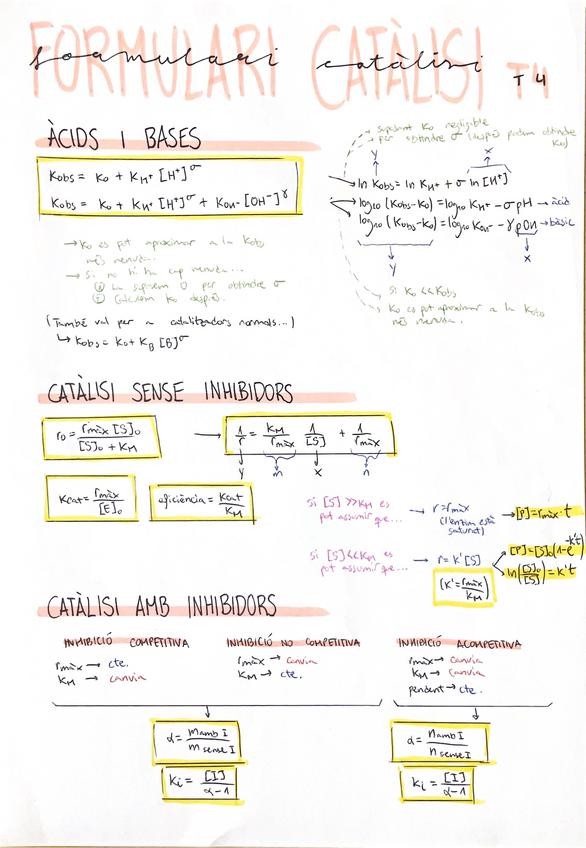 FORMULARI CATÀLISI T4
formulari catàlisi
ÀCIDS I BASES
Kobs = K₀ + K_H⁺ [H⁺]^σ
Kobs = K₀ + K_H⁺ [H⁺]^σ + K_OH⁻ [OH⁻]^γ
→ K₀ es pot aproximar a la Kobs
més menuda.
→ Si no hi ha cap menuda...
① La suposem 0 per obtindre σ
② Calculem K₀ després.
(També val per a catalitzadors normals...)
↳ Kobs = K₀ + K_B [B]^σ
suposant K₀ negligible
per obtindre σ (després podem obtindre
K₀)
Y X
ln Kobs = ln K_H⁺ + σ ln [H⁺]
log₁₀ (Kobs-K₀) = log₁₀ K_H⁺ - σ pH → àcid
log₁₀ (Kobs-K₀) = log₁₀ K_OH⁻ - γ pOH → bàsic
Y X
Si K₀ << Kobs
K₀ es pot aproximar a la Kobs
més menuda.
CATÀLISI SENSE INHIBIDORS
r₀ = rmàx [S]₀ / [S]₀ + K_M → 1/r = K_M/rmàx 1/[S] + 1/rmàx
Y m X n
Kcat = rmàx/[E]₀
eficiència = Kcat/K_M
Si [S] >> K_M es
pot assumir que...
→ r = rmàx
(l'enzim està
saturat)
→ [P] = rmàx · t
Si [S] << K_M es
pot assumir que...
→ r = K' [S]
(K' = rmàx/K_M)
[P] = [S]₀ (1 - e^-K't)
ln([S]₀/[S]) = K't
CATÀLISI AMB INHIBIDORS
INHIBICIÓ COMPETITIVA
rmàx → cte.
K_M → canvia
INHIBICIÓ NO COMPETITIVA
rmàx → canvia
K_M → cte.
INHIBICIÓ ACOMPETITIVA
rmàx → canvia
K_M → canvia
pendent → cte.
α = m amb I / m sense I
Ki = [I] / α-1
α = n amb I / n sense I
Ki = [I] / α-1